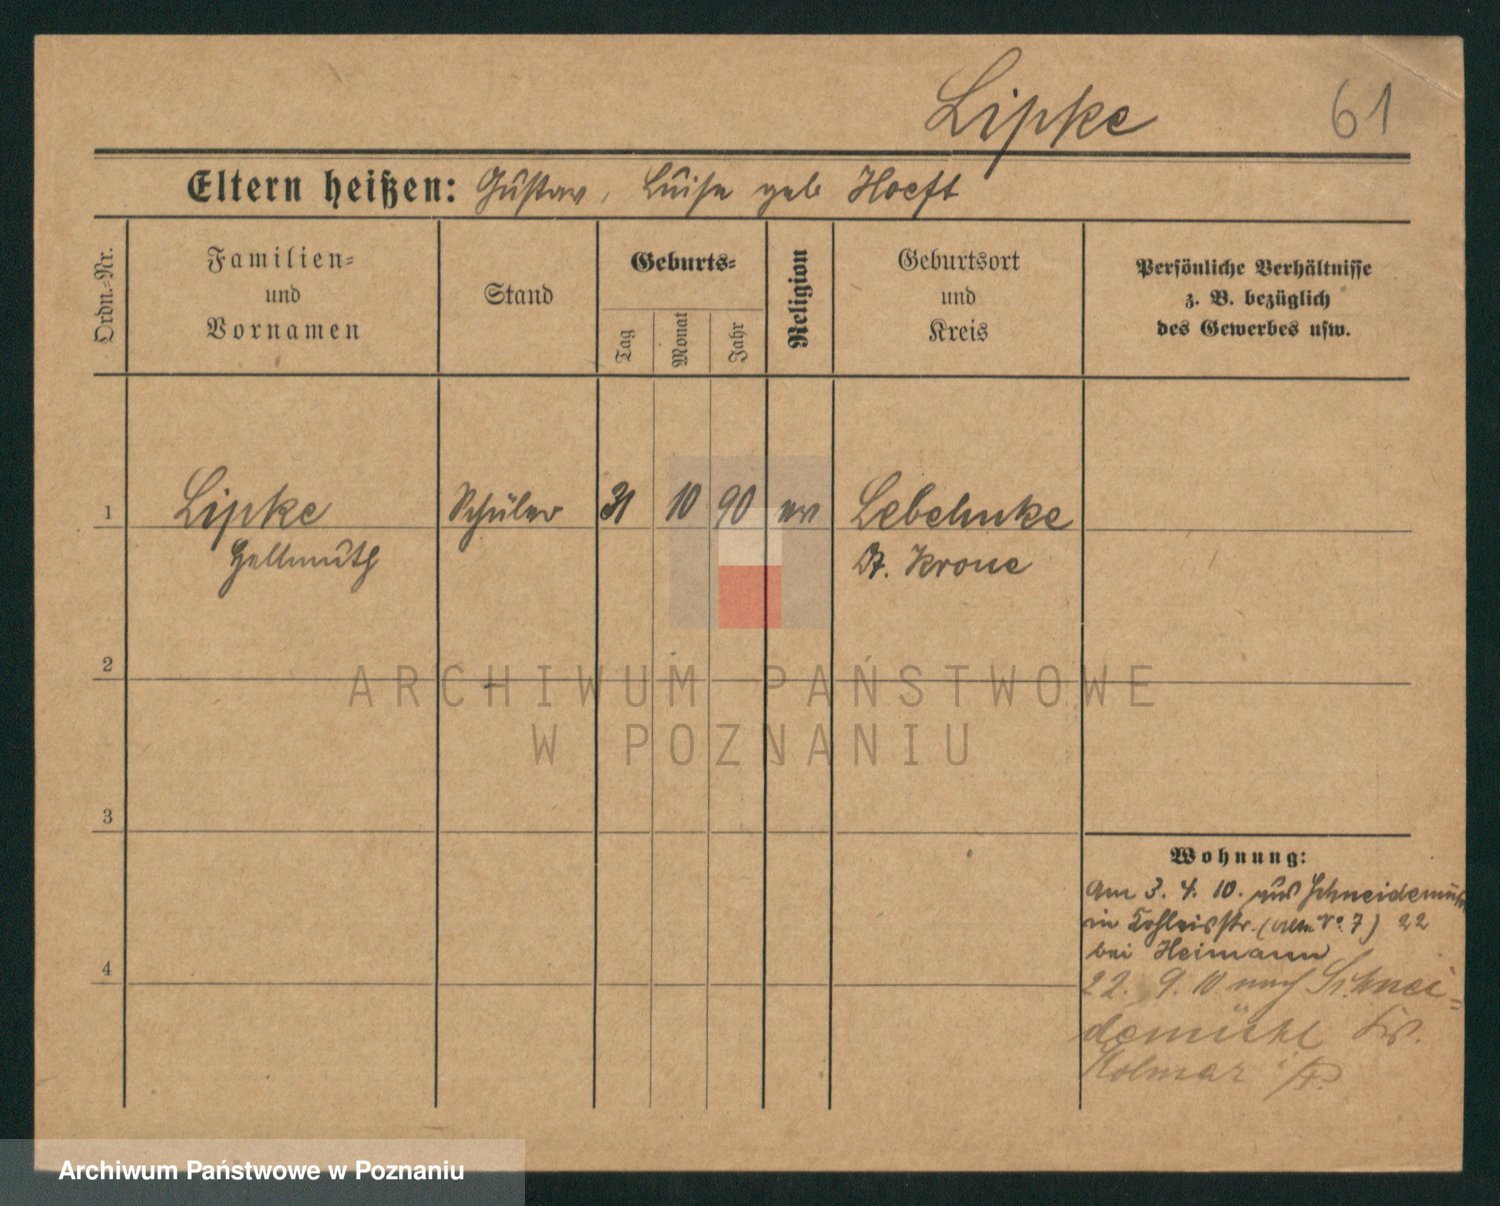 Lipke 61
Eltern heißen: Gustav, Luise geb Hoeft
Ordn.=Nr.
Familien=
und
Vornamen
Stand
Geburts=
Tag
Monat
Jahr
Religion
Geburtsort
und
Kreis
Persönliche Verhältnisse
z. B. bezüglich
des Gewerbes usw.
1 Lipke Schüler 31 10 90 ev Lebehnke
Hellmuth Dt. Krone
2
ARCHIWUM PAŃSTWOWE
W POZNANIU
3
Wohnung:
Am 3. 4. 10. aus Schneidemühl
in Kohleisstr. 7) 22
bei Heimann
4
22. 9. 10 nach Schnei=
demühl Kr.
Kolmar i/P.
Archiwum Państwowe w Poznaniu